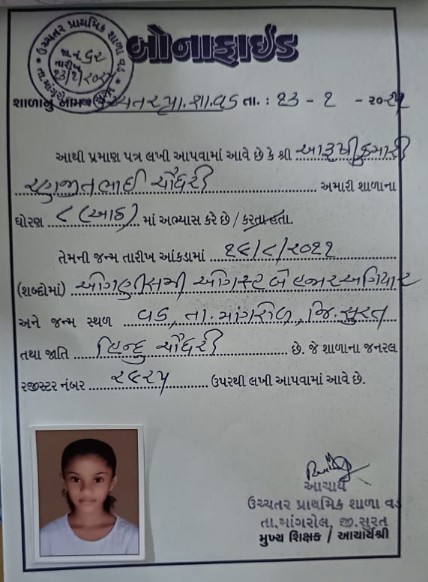 ઉચ્ચતર પ્રાથમિક શાળા વડ
તા.માંગરોલ
બોનાફાઈડ
શાળાનું નામ : ઉચ્ચતર પ્રા.શા.વડ તા. : ૨૩ - ૧ - ૨૦૨૫
આથી પ્રમાણ પત્ર લખી આપવામાં આવે છે કે શ્રી આરૂષીકુમારી
રણજીતભાઈ ચૌધરી અમારી શાળાના
ધોરણ ૮ (આઠ) માં અભ્યાસ કરે છે / કરતા હતા.
તેમની જન્મ તારીખ આંકડામાં ૨૯/૮/૨૦૧૧
(શબ્દોમાં) ઓગણીસમી ઓગસ્ટ બે હજાર અગિયાર
અને જન્મ સ્થળ વડ, તા. માંગરોળ, જિ. સુરત
તથા જાતિ હિન્દુ ચૌધરી છે. જે શાળાના જનરલ
રજીસ્ટર નંબર ૨૬૨૫ ઉપરથી લખી આપવામાં આવે છે.
આચાર્ય
ઉચ્ચતર પ્રાથમિક શાળા વડ
તા.માંગરોલ, જી.સુરત
મુખ્ય શિક્ષક / આચાર્યશ્રી